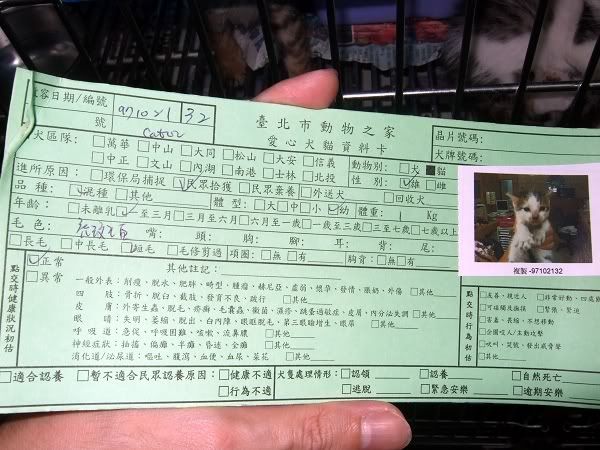 收容日期/編號 971021 32
臺北市動物之家
晶片號碼:
號
愛心犬貓資料卡
犬牌號碼:
犬區隊: □萬華 □中山 □大同 □松山 □大安 □信義 動物別: □犬 ■貓
□中正 □文山 □內湖 □南港 □士林 □北投 性別: ☑雄 □雌
進所原因: □環保局捕捉 ☑民眾拾獲 □民眾棄養 □外送犬 □回收犬
品種: ☑混種 □其他 體型: □大 □中 □小 ☑幼 體重: Kg
年齡: □未離乳 ☑至三月 □三月至六月 □六月至一歲 □一歲至三歲 □三歲至七歲 □七歲以上
毛色: 嘴: 頭: 胸: 腳: 耳: 背: 尾:
□長毛 □中長毛 ☑短毛 □毛修剪過 項圈: □無 □有 胸背: □無 □有
複製 -97102132
點交時健康狀況初估
☑正常
□異常
其他註記:
一般外表: 削瘦、脫水、肥胖、畸型、腫瘤、赫尼亞、虛弱、懷孕、發情、脹奶、外傷 □其他
四肢: 骨折、脫臼、截肢、發育不良、跛行 □其他
皮膚: 外寄生蟲、脫毛、疥癬、毛囊蟲、黴菌、濕疹、跳蚤過敏症、皮屑、內分泌失調 □其他
眼睛: 失明、萎縮、脫出、白內障、眼瞼脫毛、第三眼瞼增生、眼屎 □其他
呼吸道: 急促、呼吸困難、咳嗽、流鼻膿 □其他
神經症狀: 抽搐、偏癱、半癱、昏迷、全癱 □其他
消化道/泌尿道: 嘔吐、腹瀉、血便、血尿、菜花 □其他
點交時行為初估
□友善、親近人 □非常好動、四處
□可碰觸及撫摸 □緊張、緊迫
□害羞、畏縮、不想移動
□企圖咬人/主動攻擊
□吠叫、哭號、發出威脅聲
□其他
□適合認養 □暫不適合民眾認養原因: □健康不適 犬隻處理情形: □認領 □認養 □自然死亡
□行為不適 □逃脫 □緊急安樂 □逾期安樂